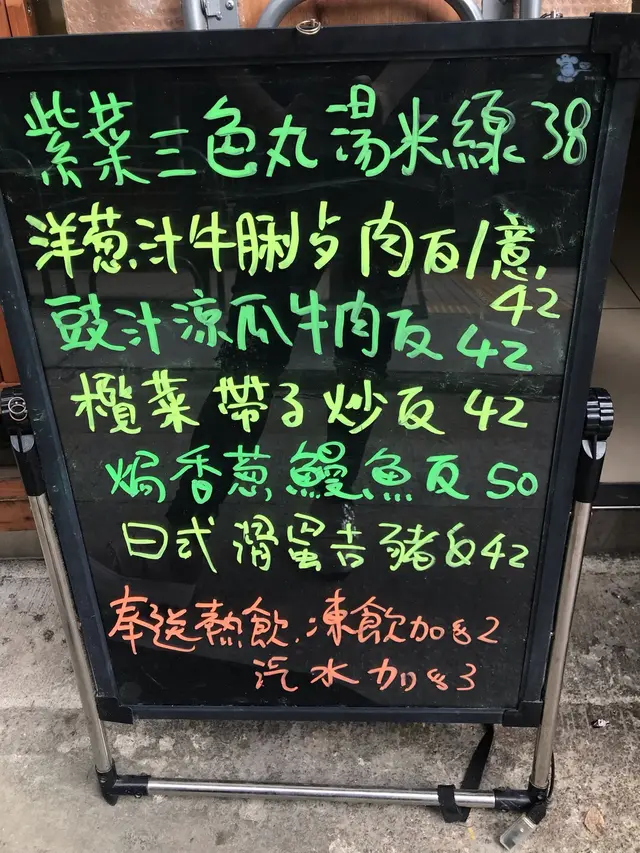 紫菜三色丸湯米線 38
洋葱汁牛脷片肉反/意
42
豉汁涼瓜牛肉反 42
欖菜帶子炒反 42
焗香葱鰻魚反 50
日式滑蛋吉豬反 42
奉送熱飲.凍飲加$2
汽水加$3